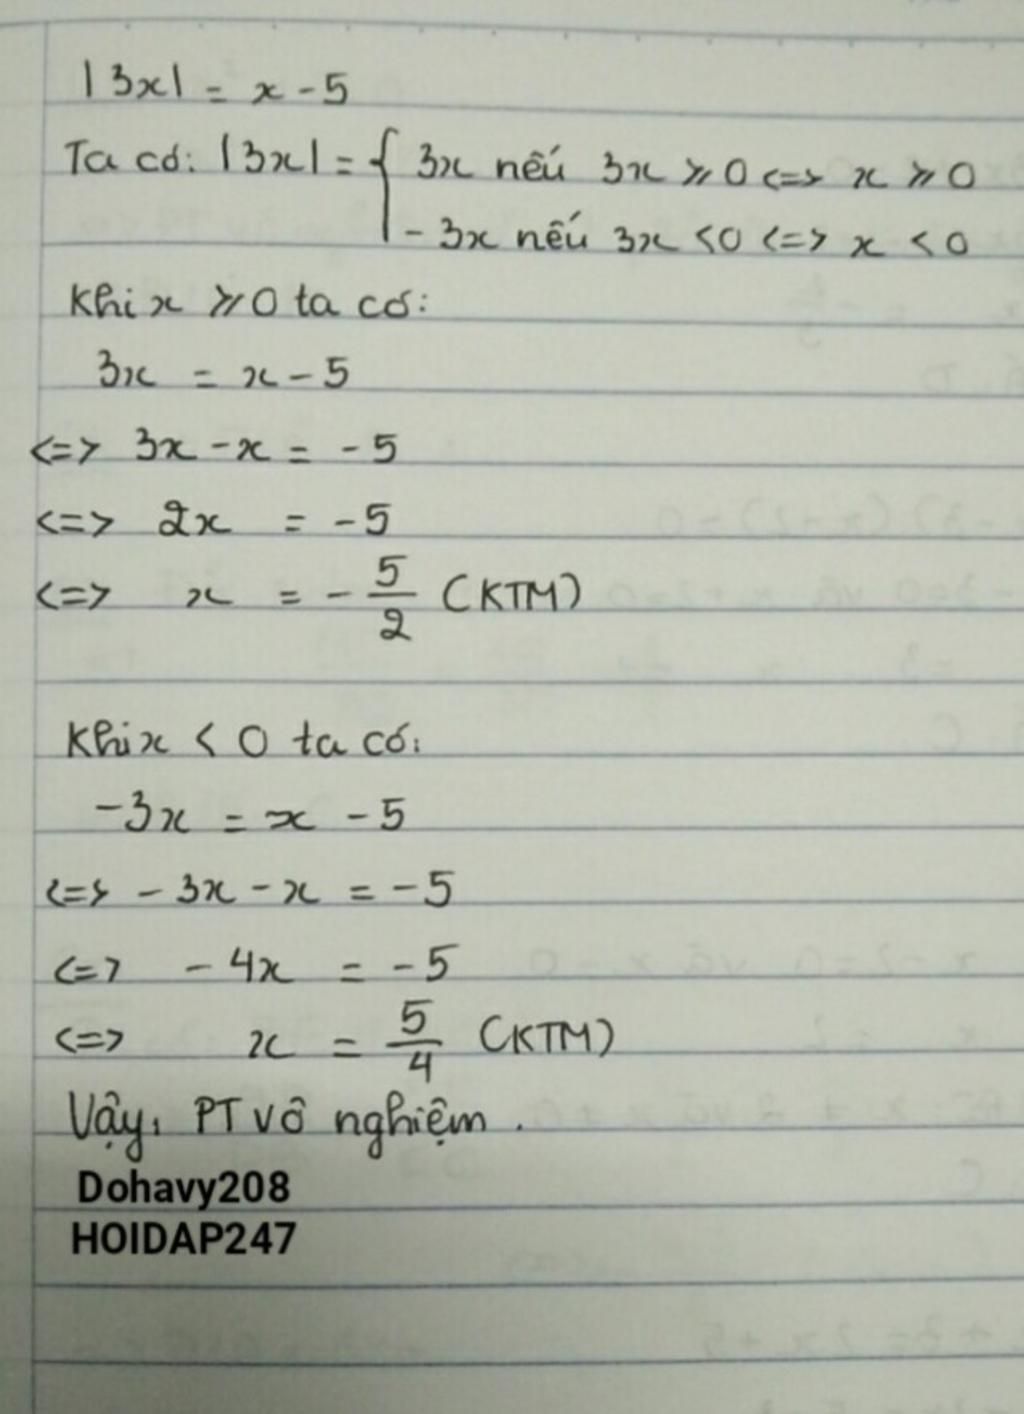 |3x| = x - 5
Ta có: |3x| = { 3x nếu 3x ⩾ 0 <=> x ⩾ 0
- 3x nếu 3x < 0 <=> x < 0
Khi x ⩾ 0 ta có:
3x = x - 5
<=> 3x - x = -5
<=> 2x = -5
<=> x = - 5/2 (KTM)
Khi x < 0 ta có:
-3x = x - 5
<=> - 3x - x = -5
<=> - 4x = -5
<=> x = 5/4 (KTM)
Vậy, PT vô nghiệm.
Dohavy208
HOIDAP247